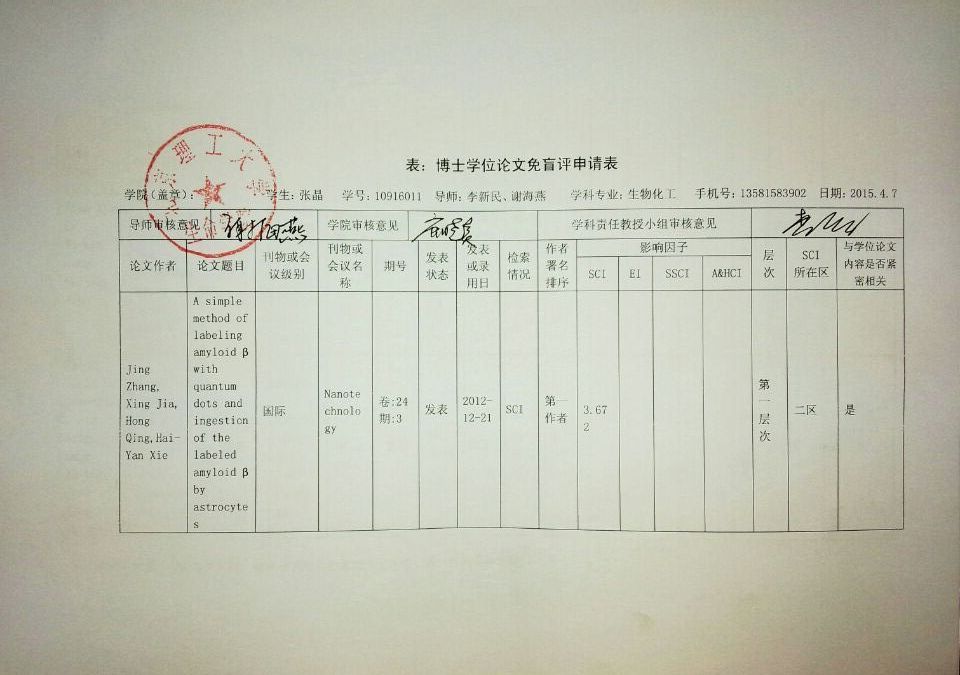 理工大学
表：博士学位论文免盲评申请表
学院（盖章）： 学生：张晶 学号：10916011 导师：李新民、谢海燕 学科专业：生物化工 手机号：13581583902 日期：2015.4.7
导师审核意见 学院审核意见 学科责任教授小组审核意见
论文作者 论文题目 刊物或会议级别 刊物或会议名称 期号 发表状态 发表或录用日 检索情况 作者署名排序 影响因子 层次 SCI所在区 与学位论文内容是否紧密相关
SCI EI SSCI A&HCI
Jing
Zhang,
Xing Jia,
Hong
Qing,Hai-
Yan Xie
A simple
method of
labeling
amyloid β
with
quantum
dots and
ingestion
of the
labeled
amyloid β
by
astrocyte
s
国际
Nanote
chnolo
gy
卷:24
期:3
发表
2012-
12-21
SCI
第一
作者
3.67
2
第
一
层
次
二区
是